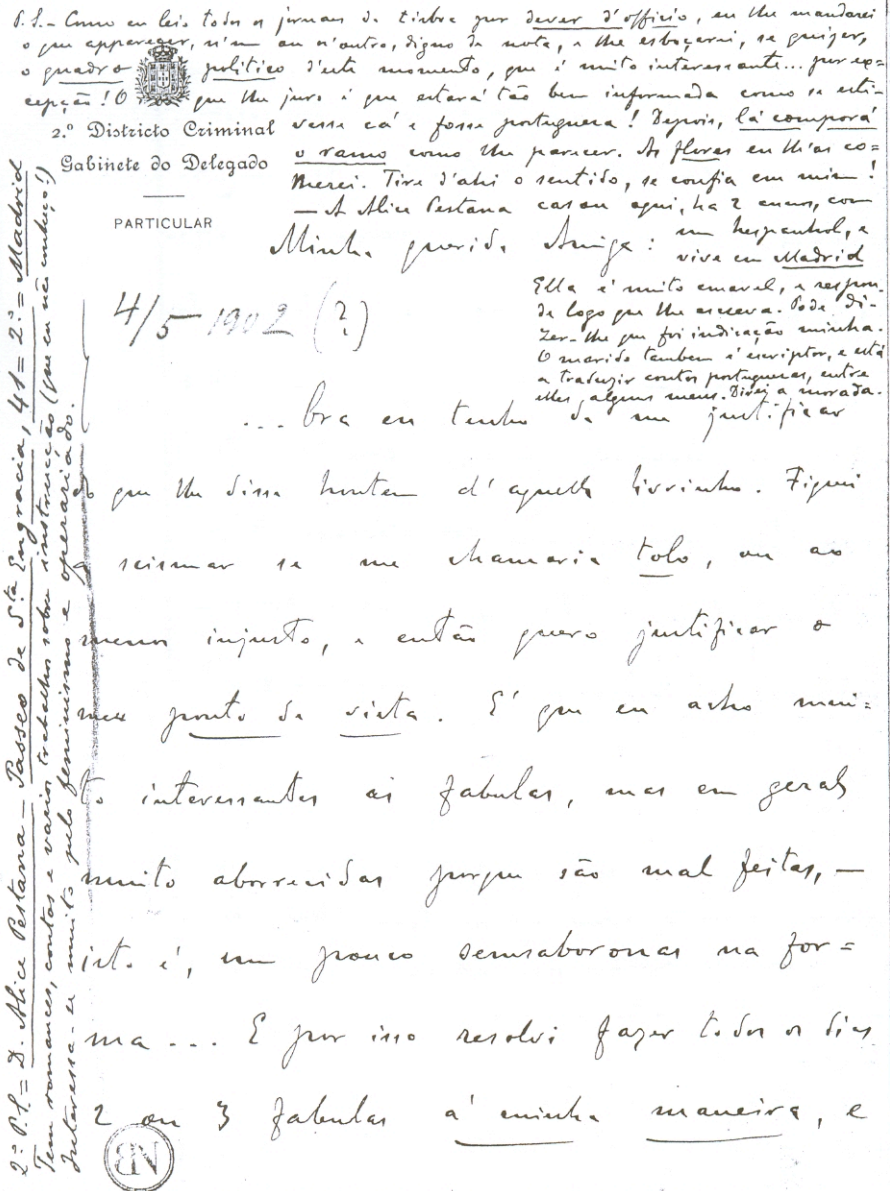 P.S. - Como eu leio todos os jornaes de tiabra por dever d'officio, eu lhe mandarei
o que apparecer, n'um ou n'outro, digno de nota, e lhe esboçarei, se quizer,
o quadro politico d'este momento, que é muito interessante... por ex-
cepção! O que lhe juro é que estará tão bem informada como se esti-
vesse cá e fosse portugueza! Depois, lá comporá
o ramo como lhe parecer. As flores eu lh'as co-
lherei. Tire d'ahi o sentido, se confia em mim!
— A Alice Pestana casou aqui, ha 2 annos, com
um hespanhol, e
vive em Madrid
Ella é muito amavel, e respon-
de logo que lhe escreva. Pode di-
zer-lhe que foi indicação minha.
O marido tambem é escriptor, e está
a traduzir contos portuguezes, entre
elles alguns meus. Direi a morada.
2.º Districto Criminal
Gabinete do Delegado
PARTICULAR
Minha querida Amiga:
4/5 1902 (?)
...bra eu tenho de me justificar
do que lhe disse hontem d'aquelle livrinho. Fiquei
a scismar se me chamaria tolo, ou ao
menos injusto, e então quero justificar o
meu ponto de vista. É que eu acho mui=
to interessantes as fabulas, mas em geral
muito aborrecidas porque são mal feitas, —
isto é, um pouco semsaboronas na for=
ma... E por isso resolvi fazer todos os dias
2 ou 3 fabulas á minha maneira, e
2º P.S. = D. Alice Pestana — Passeo de Sta Engracia, 41 = 2º = Madrid
Tem romances, contos e varios trabalhos sobre instrucção (que eu não conheço!)
Interessa-se muito pelo feminismo e operariado.
NB